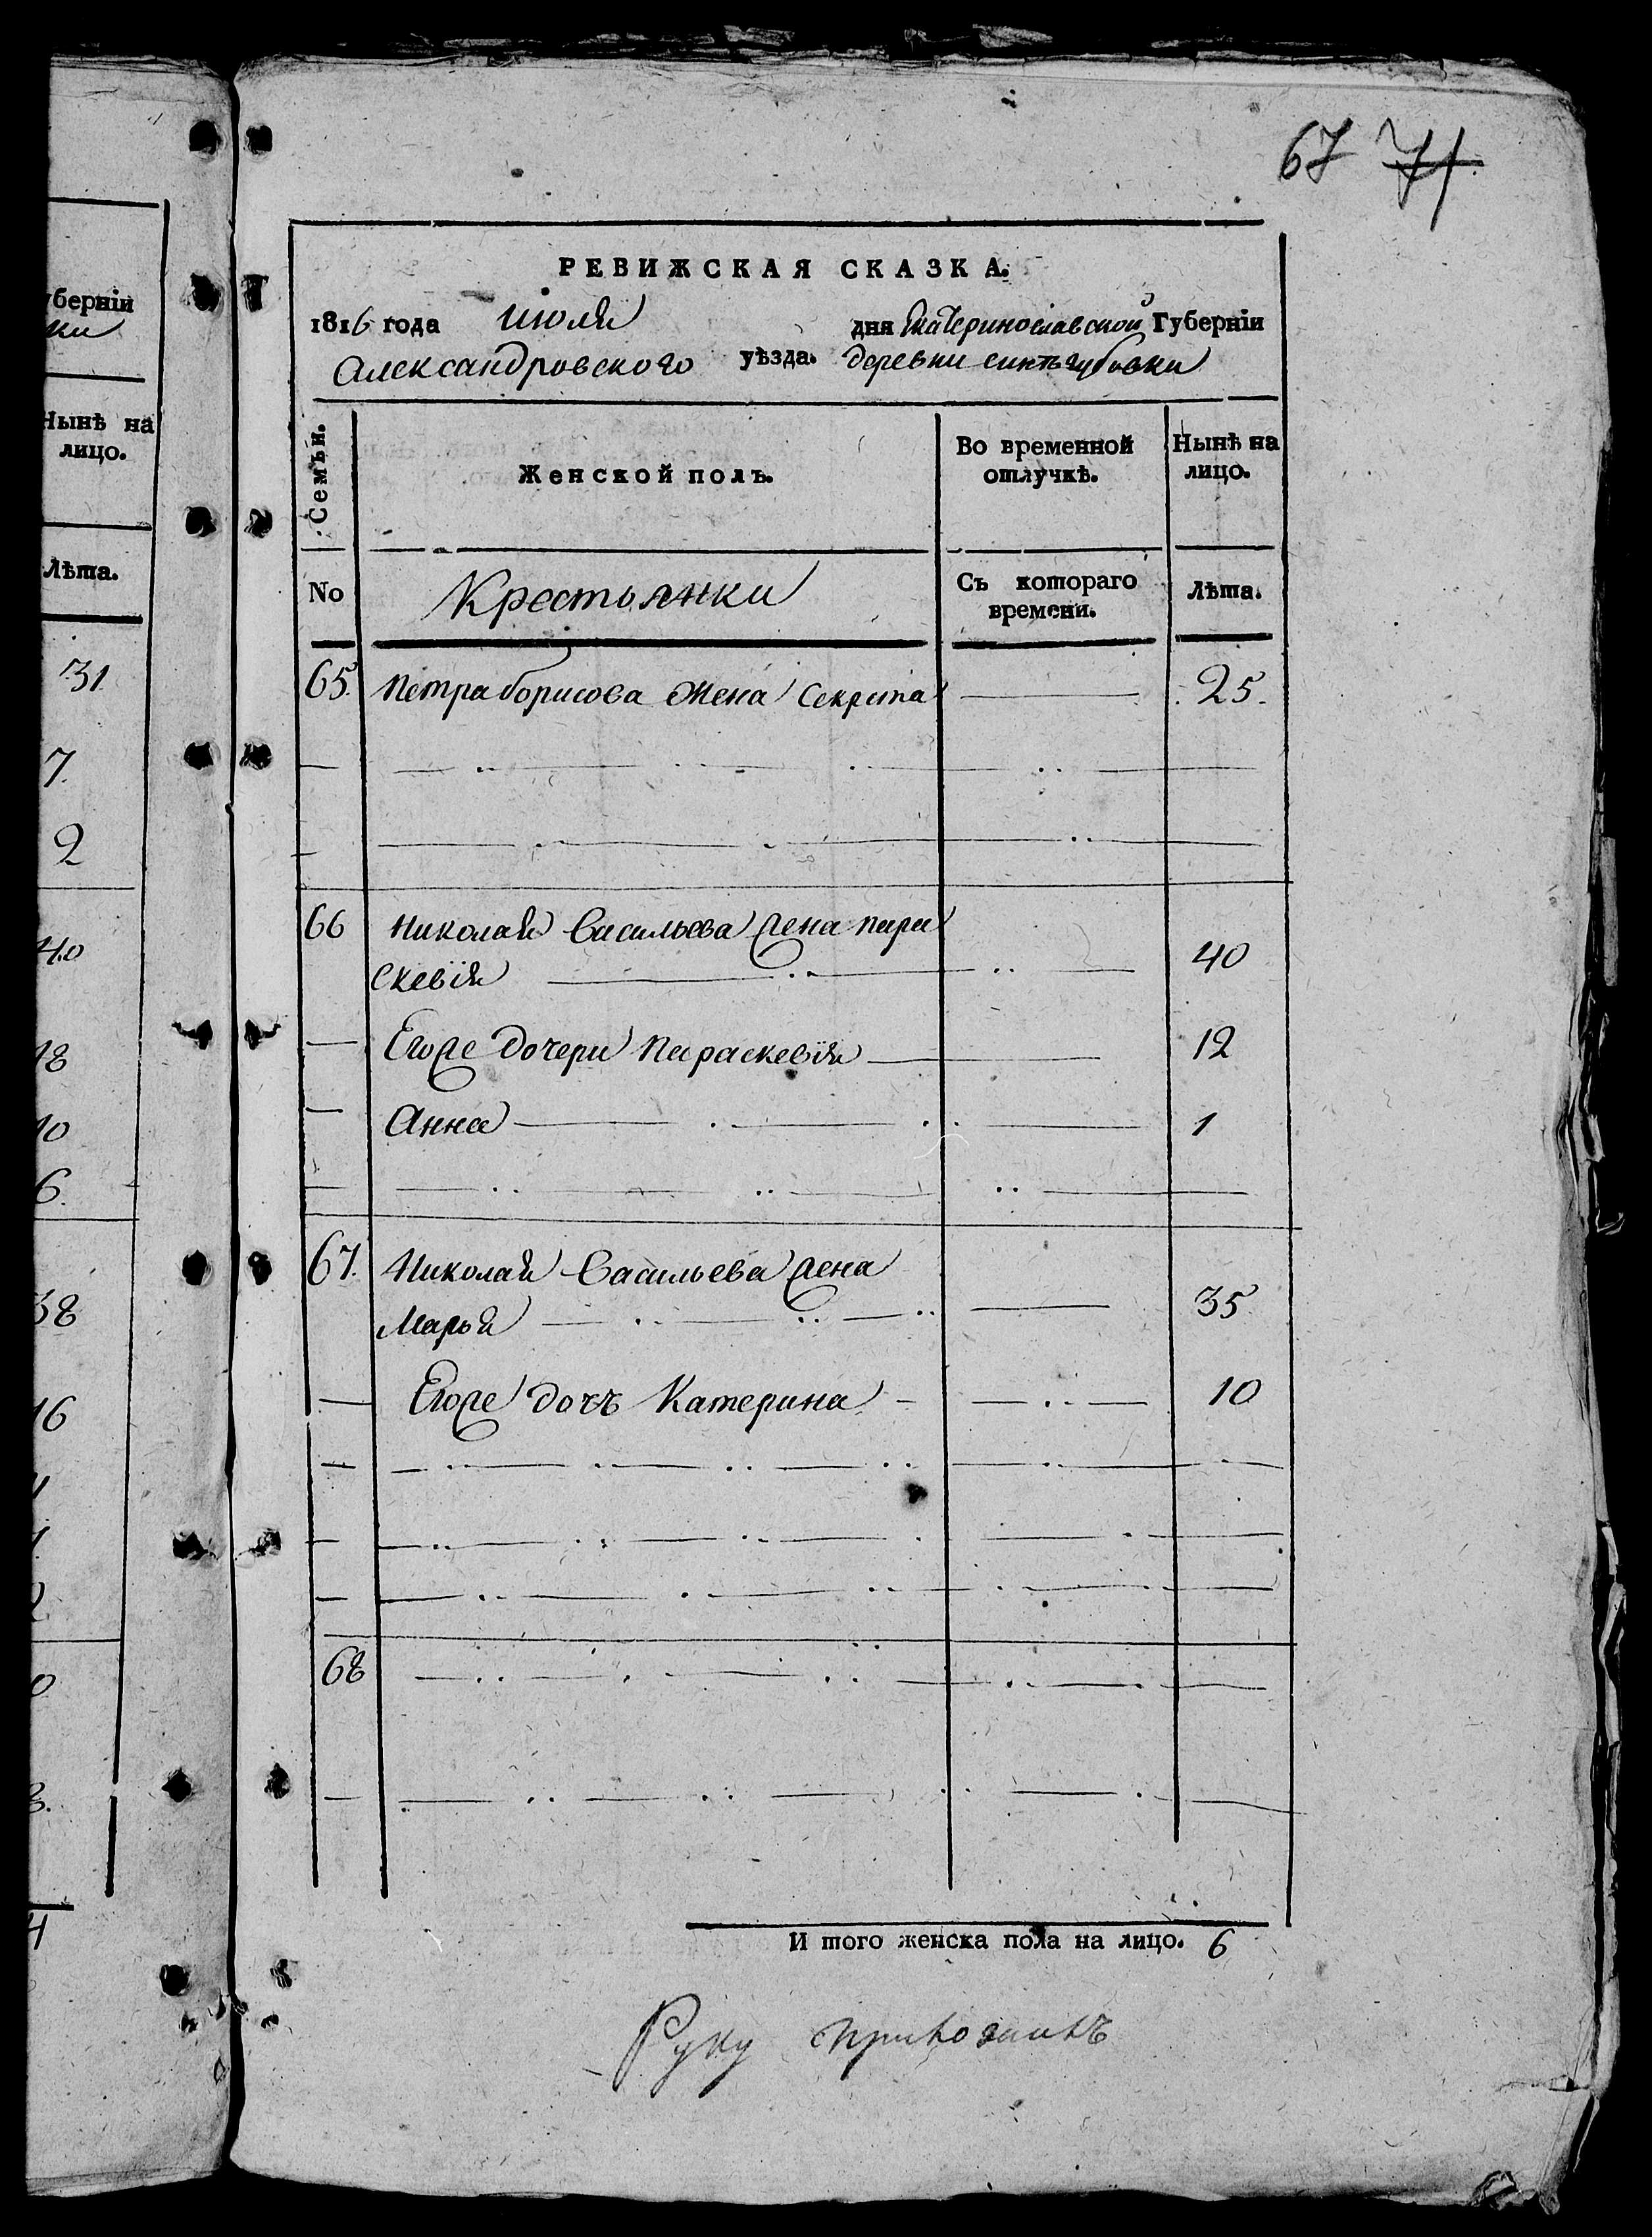 67 71
РЕВИЖСКАЯ СКАЗКА.
1816 года июля дня Екатеринославской Губерніи
Александровского уѣзда. деревни
Семьи.
Женской полъ.
Во временной отлучкѣ.
Нынѣ на лицо.
No
Крестьянки
Съ котораго времени.
Лѣта.
65. Петра борисова Жена 25.
66 Николая Васильева жена пара
скевія 40
Егоже дочери Параскевія 12
Анна 1
67. Николая Васильева жена
Марья 35
Егоже дочь Катерина 10
68
И того женска пола на лицо. 6
Руку приложилъ
уберніи
ки
Нынѣ на
лицо.
Лѣта.
31
7.
2
40
18
10
6.
38
16